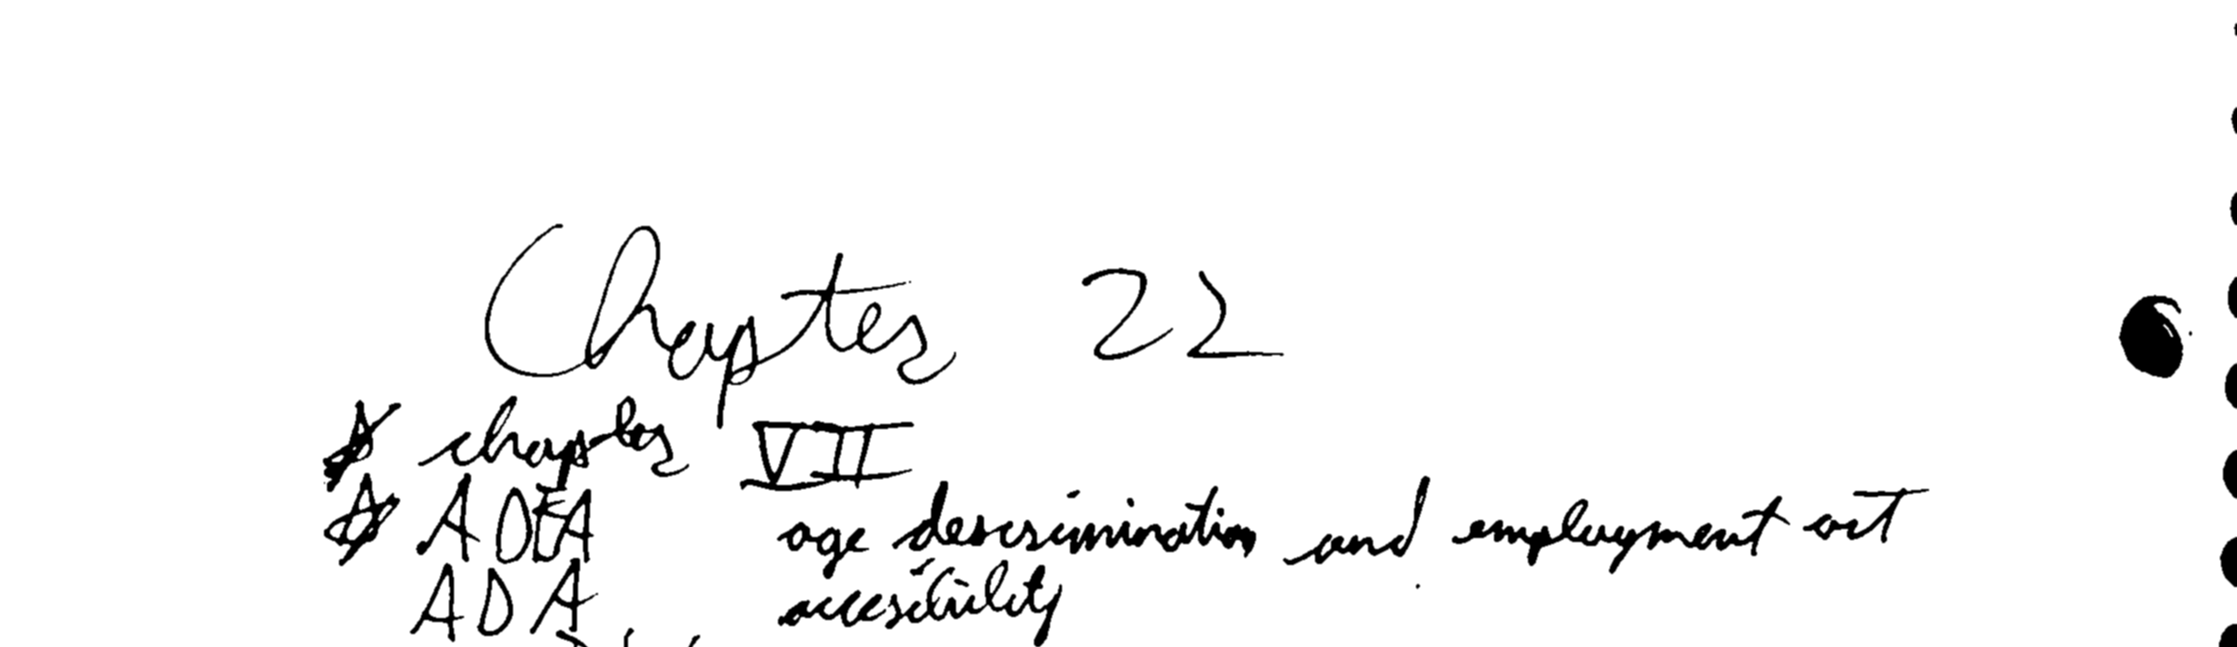 Chapter 22
☆ chapter VII
☆ ADEA age descrimination and employment act
ADA accesibility